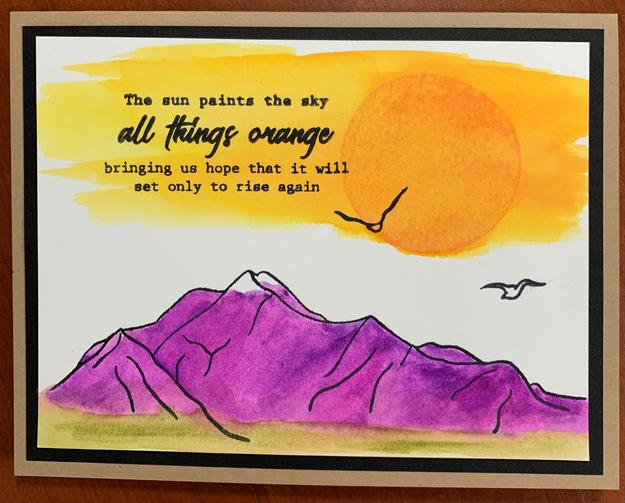 The sun paints the sky
all things orange
bringing us hope that it will
set only to rise again